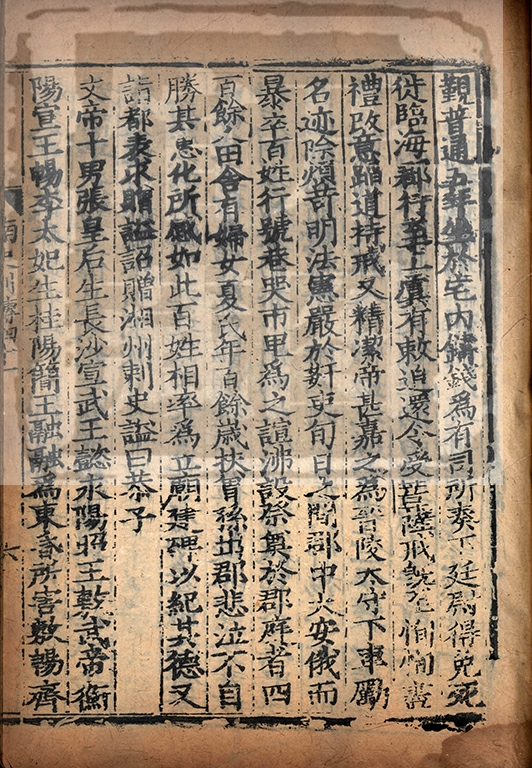 觀普通五年坐於宅內鑄錢爲有司所奏下廷尉得免死
徙臨海郡行至上虞有敕追還令受菩薩戒既至恂恂盡
禮改意蹈道持戒又精潔帝甚嘉之爲晉陵太守下車勵
名迹除煩苛明法憲嚴於奸吏旬日之間郡中大安俄而
暴卒百姓行號巷哭市里爲之諠沸設祭奠於郡庭者四
百餘人田舍有婦女夏氏年百餘歲扶曾孫出郡悲泣不自
勝其惠化所感如此百姓相率爲立廟建碑以紀其德又
詣都表求贈謚詔贈湘州刺史謚曰恭子
文帝十男張皇后生長沙宣武王懿永陽昭王敷武帝衡
陽宣王暢李太妃生桂陽簡王融融爲東昏所害敷暢齊
六